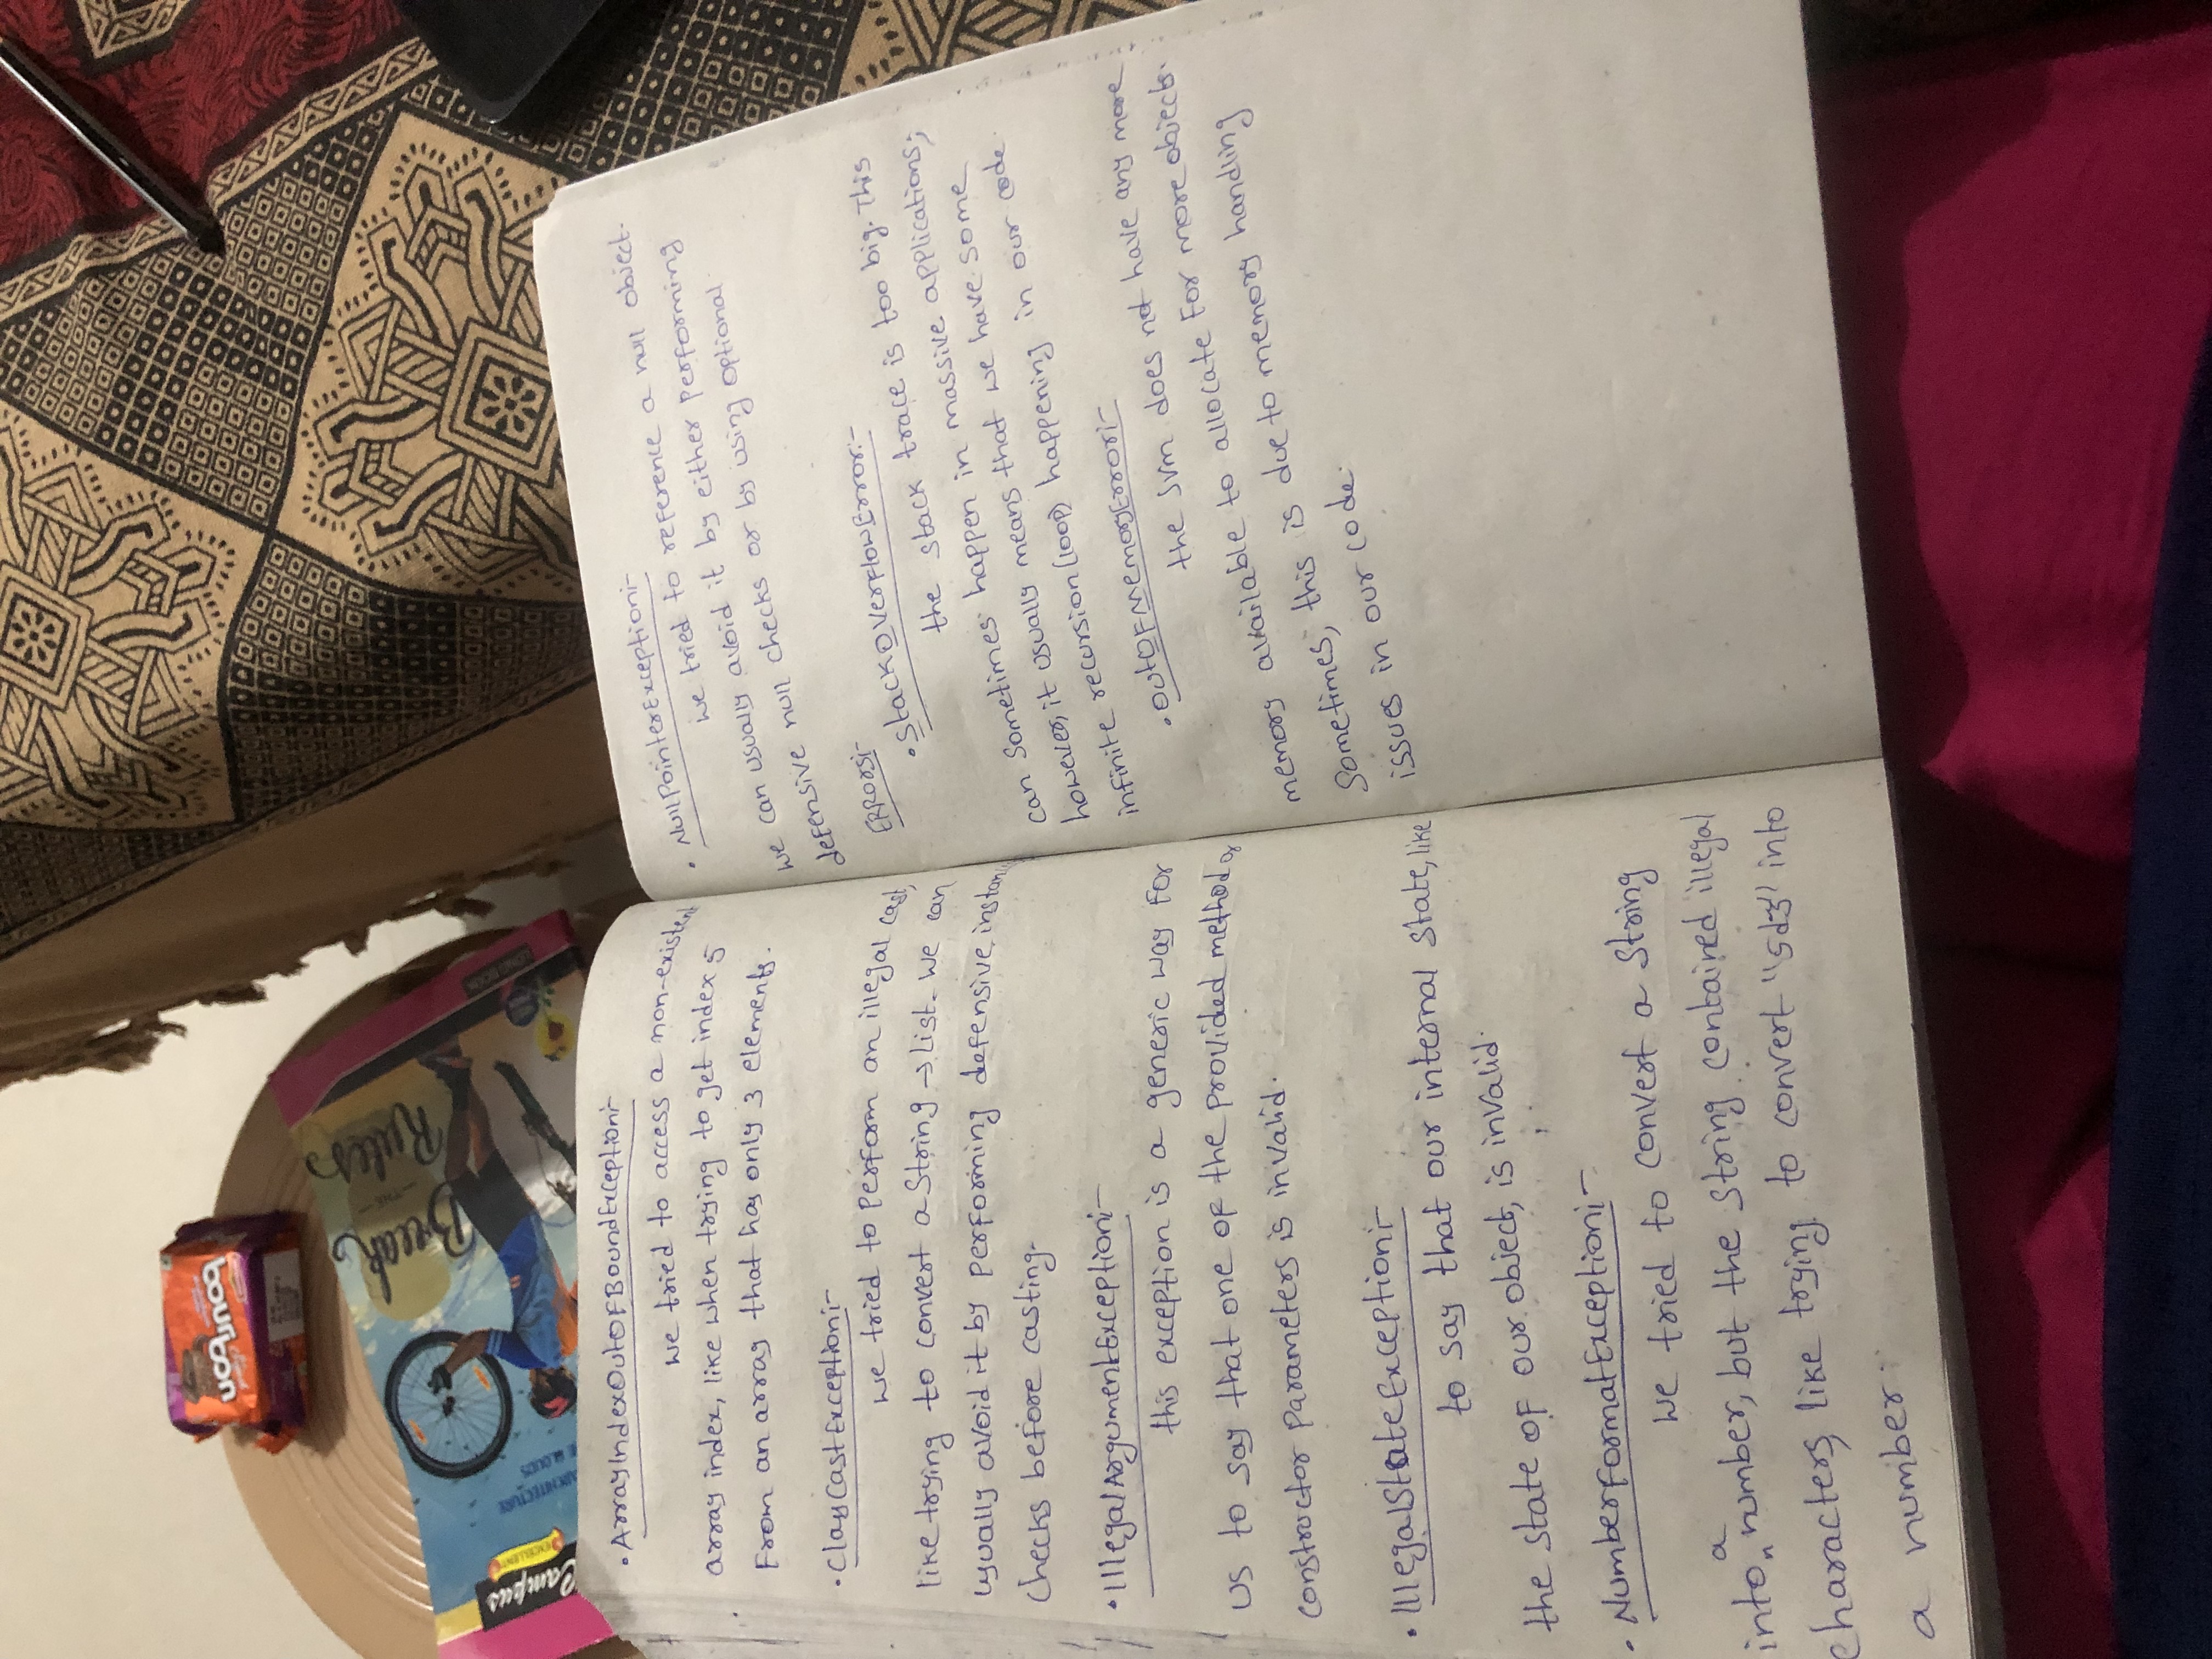 bourbon
Break
THE
Rules
Campus
EXCELLENT
• ArrayIndexOutOFBoundException:-
we tried to access a non-existent
array index, like when trying to get index 5
From an array that has only 3 elements.
• ClassCastException:-
we tried to perform an illegal cast,
like trying to convert a String → List. We can
usually avoid it by performing defensive instan
checks before casting.
• IllegalArgumentException:-
this exception is a generic way for
us to say that one of the provided method or
constructor parameters is invalid.
• IllegalStateException:-
to say that our internal state, like
the state of our object, is invalid.
• NumberFormatException:-
We tried to convert a String
into a number, but the string contained illegal
characters, like trying to convert "5d3" into
a number.
• NullPointerException:-
we tried to reference a null object.
we can usually avoid it by either performing
defensive null checks or by using optional
ERRors:-
• StackOverflowError:-
the stack trace is too big. This
can sometimes happen in massive applications;
however, it usually means that we have some
infinite recursion (loop) happening in our code.
• OutOFMemoryError:-
the JVM does not have any more
memory available to allocate for more objects.
Sometimes, this is due to memory handling
issues in our code.